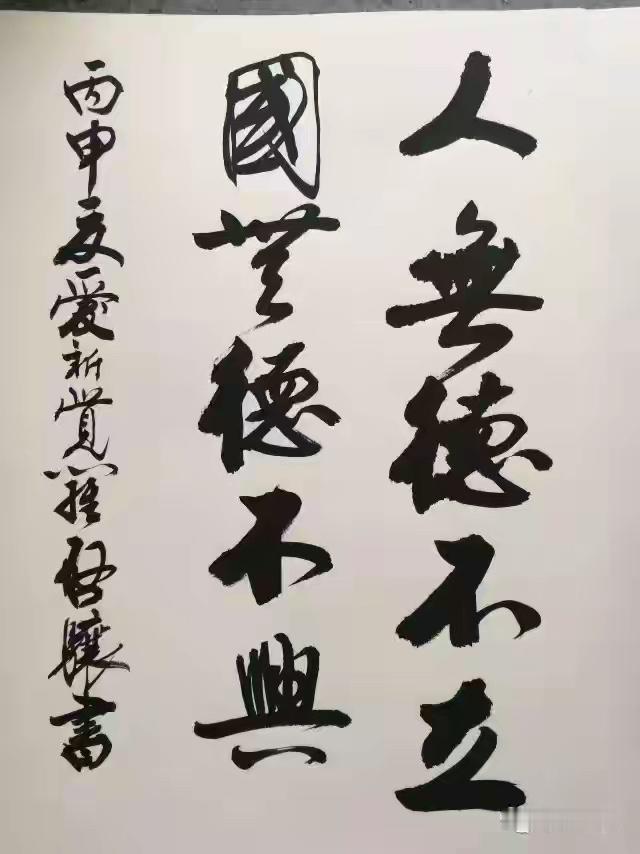 人無德不立
國無德不興
丙申夏愛新覺羅啓驤書